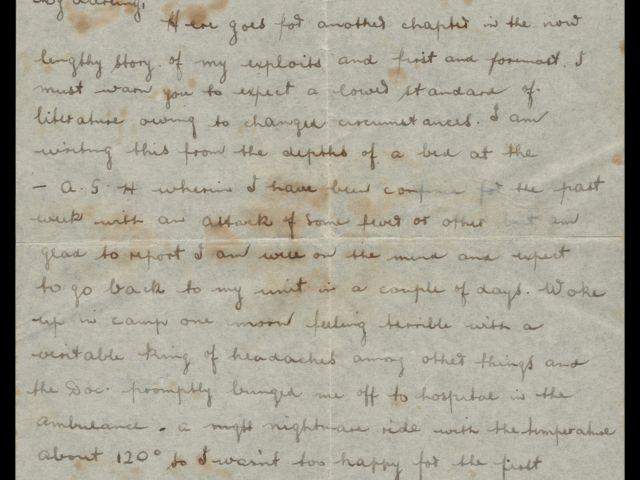 My darling,
Here goes for another chapter in the now
lengthy story of my exploits and first and foremost I
must warn you to expect a lower standard of
literature owing to changed circumstances. I am
writing this from the depths of a bed at the
- A. G. H wherein I have been confine for the past
week with an attack of some fever or other but am
glad to report I am well on the mend and expect
to go back to my unit in a couple of days. Woke
up in camp one morn feeling terrible with a
veritable king of headaches among other things and
the Doc. promptly bunged me off to hospital in the
ambulance. a night nightmare ride with the temperature
about 120° so I wasn't too happy for the first